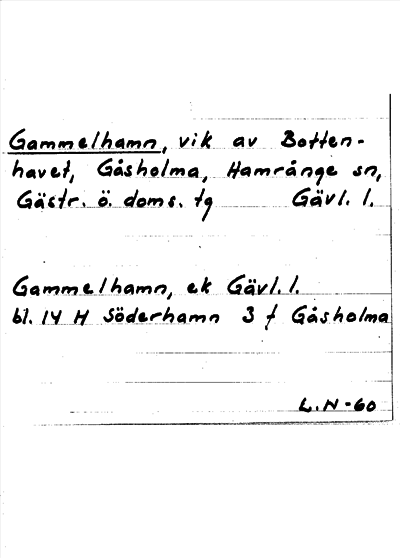 Gammelhamn, vik av Botten-
havet, Gåsholma, Hamrånge sn,
Gästr. ö. doms. tg Gävl. l.
Gammelhamn, ek Gävl. l.
bl. 14 H Söderhamn 3 f Gåsholma
L.N-60